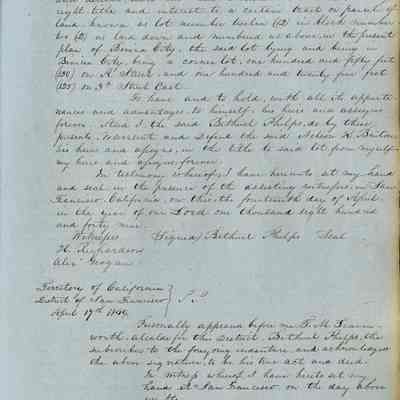 right title and interest to a certain tract or parcel of
land known as lot number twelve (12) in Block number
two (2) as laid down and numbered as above, in the present
plan of Benicia City, the said lot lying and being in
Benicia City, being a corner lot, one hundred and fifty feet
(150) on K Street, and one hundred and twenty five feet
(125) on 3d Street East.
To have and to hold, with all its appurte-
nances and advantages to himself, his heirs and assigns
forever. And I, the said Bethuel Phelps, do by these
presents, Warrant and Defend the said
his heirs and assigns, in the title to said lot from myself
my heirs and assigns forever.
In testimony whereof, I have hereunto set my hand
and seal in the presence of the attesting witnesses, in San
Francisco California, on this the fourteenth day of April
in the year of our Lord one thousand eight hundred
and forty nine.
Witnesses Signed Bethuel Phelps Seal
H. Richardson
Alex Grogan
Territory of California }
District of San Francisco } S.S.
April 17th 1849
Personally appeared before me T. M. Leaven-
worth Alcalde for this District, Bethuel Phelps, the
subscriber to the foregoing indenture, and acknowledged
the above signature, to be his true act and deed.
In witness whereof I have hereto set my
hand at San Francisco on the day above